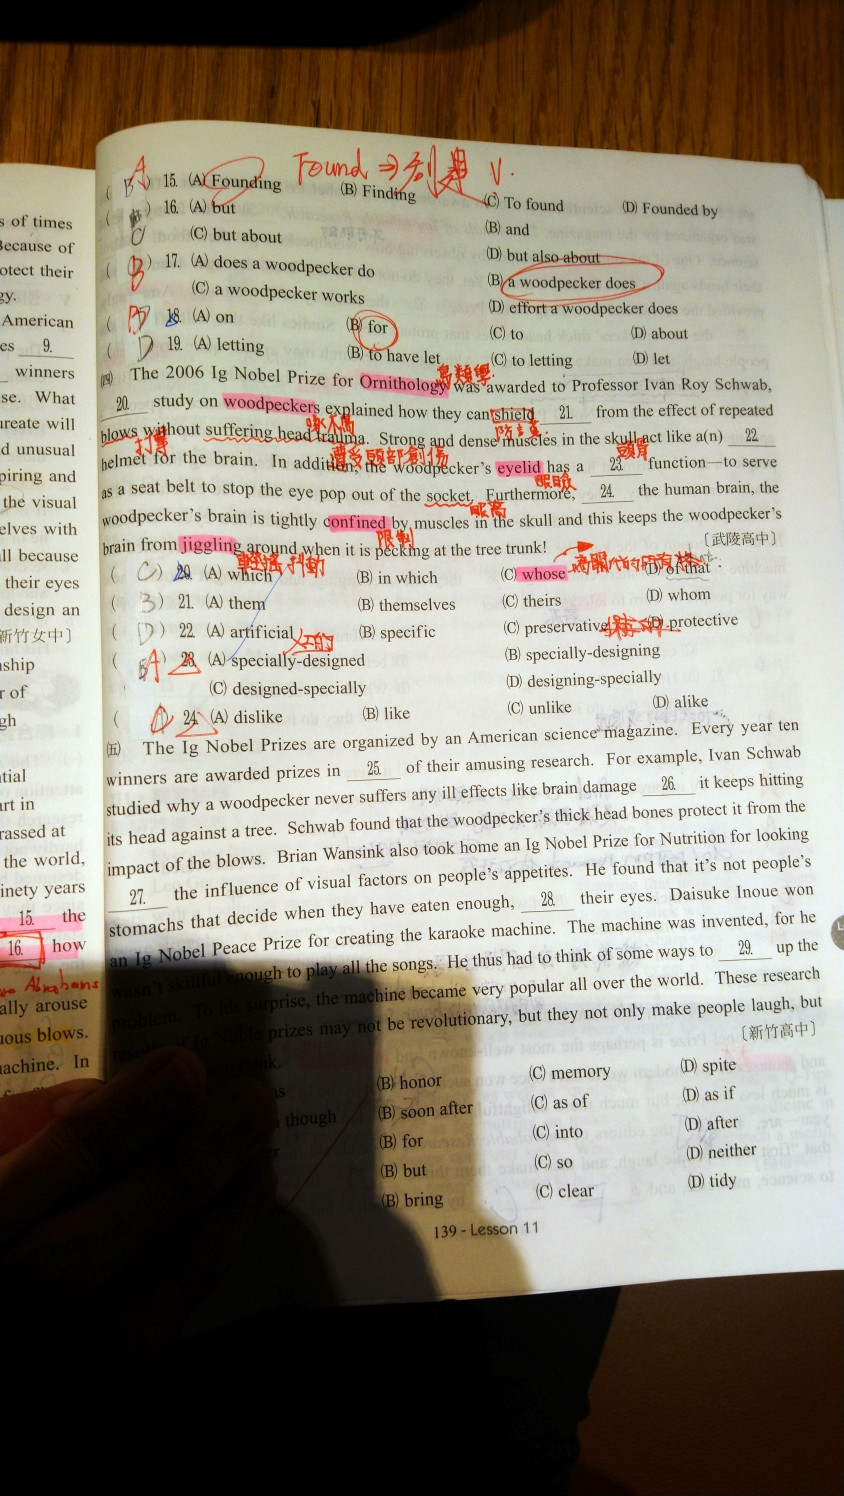 s of times
Because of
otect their
gy.
American
es 9.
winners
se. What
ureate will
d unusual
piring and
the visual
elves with
ll because
their eyes
design an
新竹女中〕
ship
r of
gh
tial
art in
rassed at
the world,
inety years
15. the
16. how
Abrahams
ally arouse
uous blows.
achine. In
A Found ⇒ 創建 V.
( B ) 15. (A) Founding (B) Finding (C) To found (D) Founded by
( ) 16. (A) but (B) and
C (C) but about (D) but also about
( B ) 17. (A) does a woodpecker do (B) a woodpecker does
(C) a woodpecker works (D) effort a woodpecker does
( B ) 18. (A) on (B) for (C) to (D) about
( D ) 19. (A) letting (B) to have let (C) to letting (D) let
㈣ The 2006 Ig Nobel Prize for Ornithology was awarded to Professor Ivan Roy Schwab,
鳥類學
20. study on woodpeckers explained how they can shield 21. from the effect of repeated
啄木鳥 防護
blows without suffering head trauma. Strong and dense muscles in the skull act like a(n) 22.
打擊 遭受頭部創傷 頭骨
helmet for the brain. In addition, the woodpecker's eyelid has a 23. function—to serve
眼瞼
as a seat belt to stop the eye pop out of the socket. Furthermore, 24. the human brain, the
眼窩
woodpecker's brain is tightly confined by muscles in the skull and this keeps the woodpecker's
限制
brain from jiggling around when it is pecking at the tree trunk! 〔武陵高中〕
輕搖抖動
( C ) 20. (A) which (B) in which (C) whose (D) of that
( B ) 21. (A) them (B) themselves (C) theirs (D) whom
( D ) 22. (A) artificial (B) specific (C) preservative (D) protective
人工的
( A ) 23. (A) specially-designed (B) specially-designing
(C) designed-specially (D) designing-specially
( A ) 24. (A) dislike (B) like (C) unlike (D) alike
㈤ The Ig Nobel Prizes are organized by an American science magazine. Every year ten
winners are awarded prizes in 25. of their amusing research. For example, Ivan Schwab
studied why a woodpecker never suffers any ill effects like brain damage 26. it keeps hitting
its head against a tree. Schwab found that the woodpecker's thick head bones protect it from the
impact of the blows. Brian Wansink also took home an Ig Nobel Prize for Nutrition for looking
27. the influence of visual factors on people's appetites. He found that it's not people's
stomachs that decide when they have eaten enough, 28. their eyes. Daisuke Inoue won
an Ig Nobel Peace Prize for creating the karaoke machine. The machine was invented, for he
wasn't skillful enough to play all the songs. He thus had to think of some ways to 29. up the
problem. To his surprise, the machine became very popular all over the world. These research
results of Ig Noble prizes may not be revolutionary, but they not only make people laugh, but
think. 〔新竹高中〕
(B) honor (C) memory (D) spite
though (B) soon after (C) as of (D) as if
(B) for (C) into (D) after
(B) but (C) so (D) neither
(B) bring (C) clear (D) tidy
139 - Lesson 11